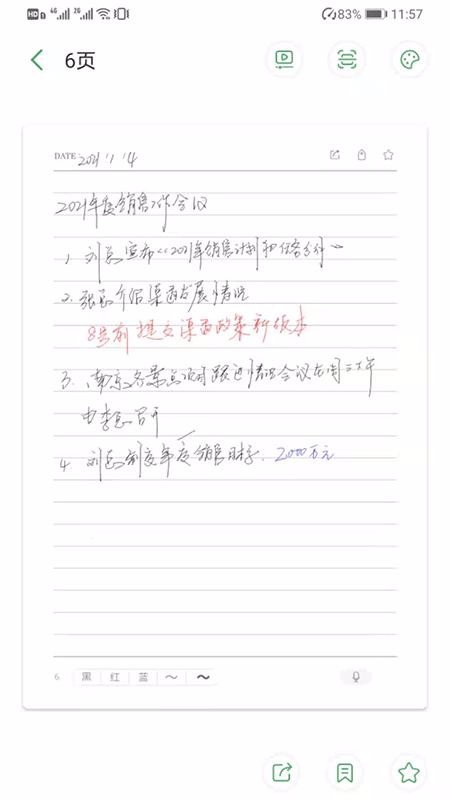 HD 4G 2G 83% 11:57
6页
DATE 2021 1 14
2021年度销售工作会议
1、刘总宣布《2021年销售计划和任务分件》
2. 张总介绍渠道发展情况
8号前提交渠道政策新版本
3. 南京各景点项目跟进情况会议在周三下午
由李总召开
4 刘总制定年度销售目标. 2000万元
6 黑 红 蓝